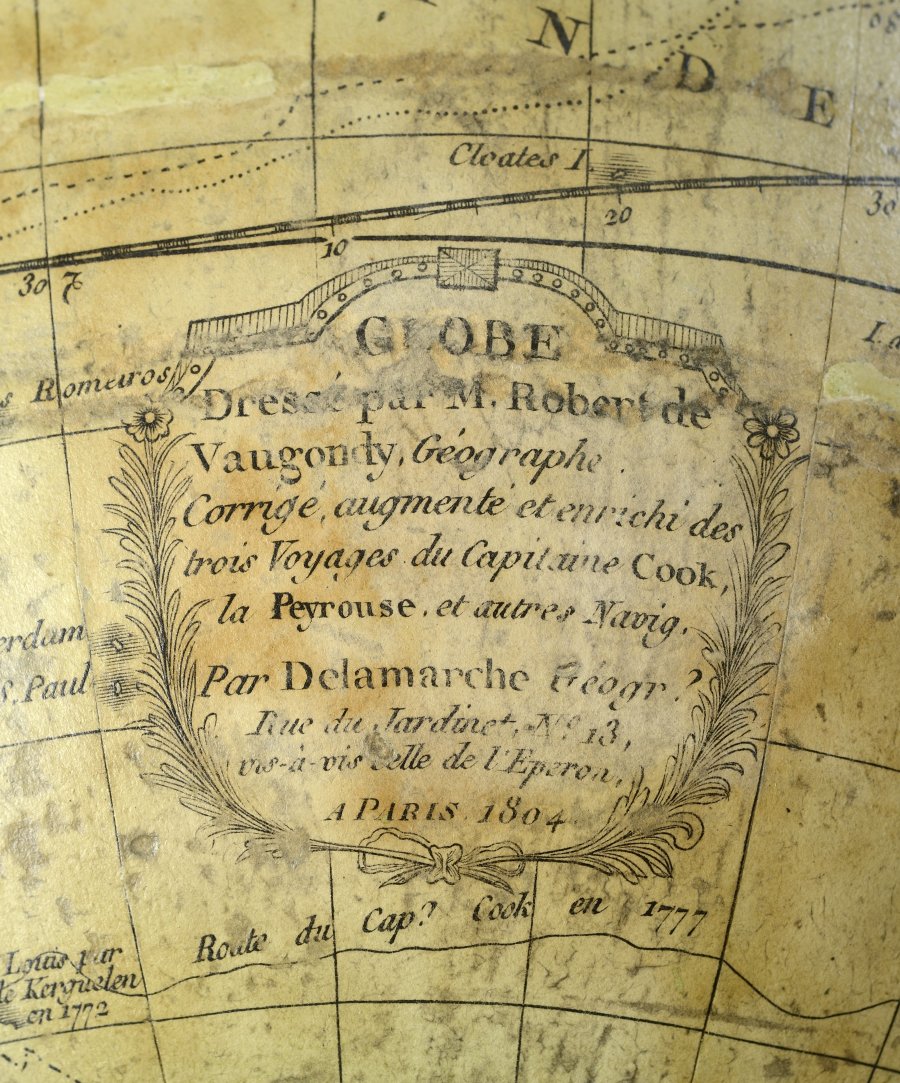 N D E
Cloates I.
20
30
10
30 7
GLOBE
Romeiros
Dressé par M. Robert de
Vaugondy, Géographe.
Corrigé, augmenté et enrichi des
trois Voyages du Capitaine Cook,
la Peyrouse, et autres Navig.
erdam
S. Paul
Par Delamarche Géogr.
Rue du Jardinet, No. 13,
vis-à-vis celle de l'Eperon,
A PARIS 1804
Route du Cap? Cook en 1777
Louis par
de Kerguelen
en 1772